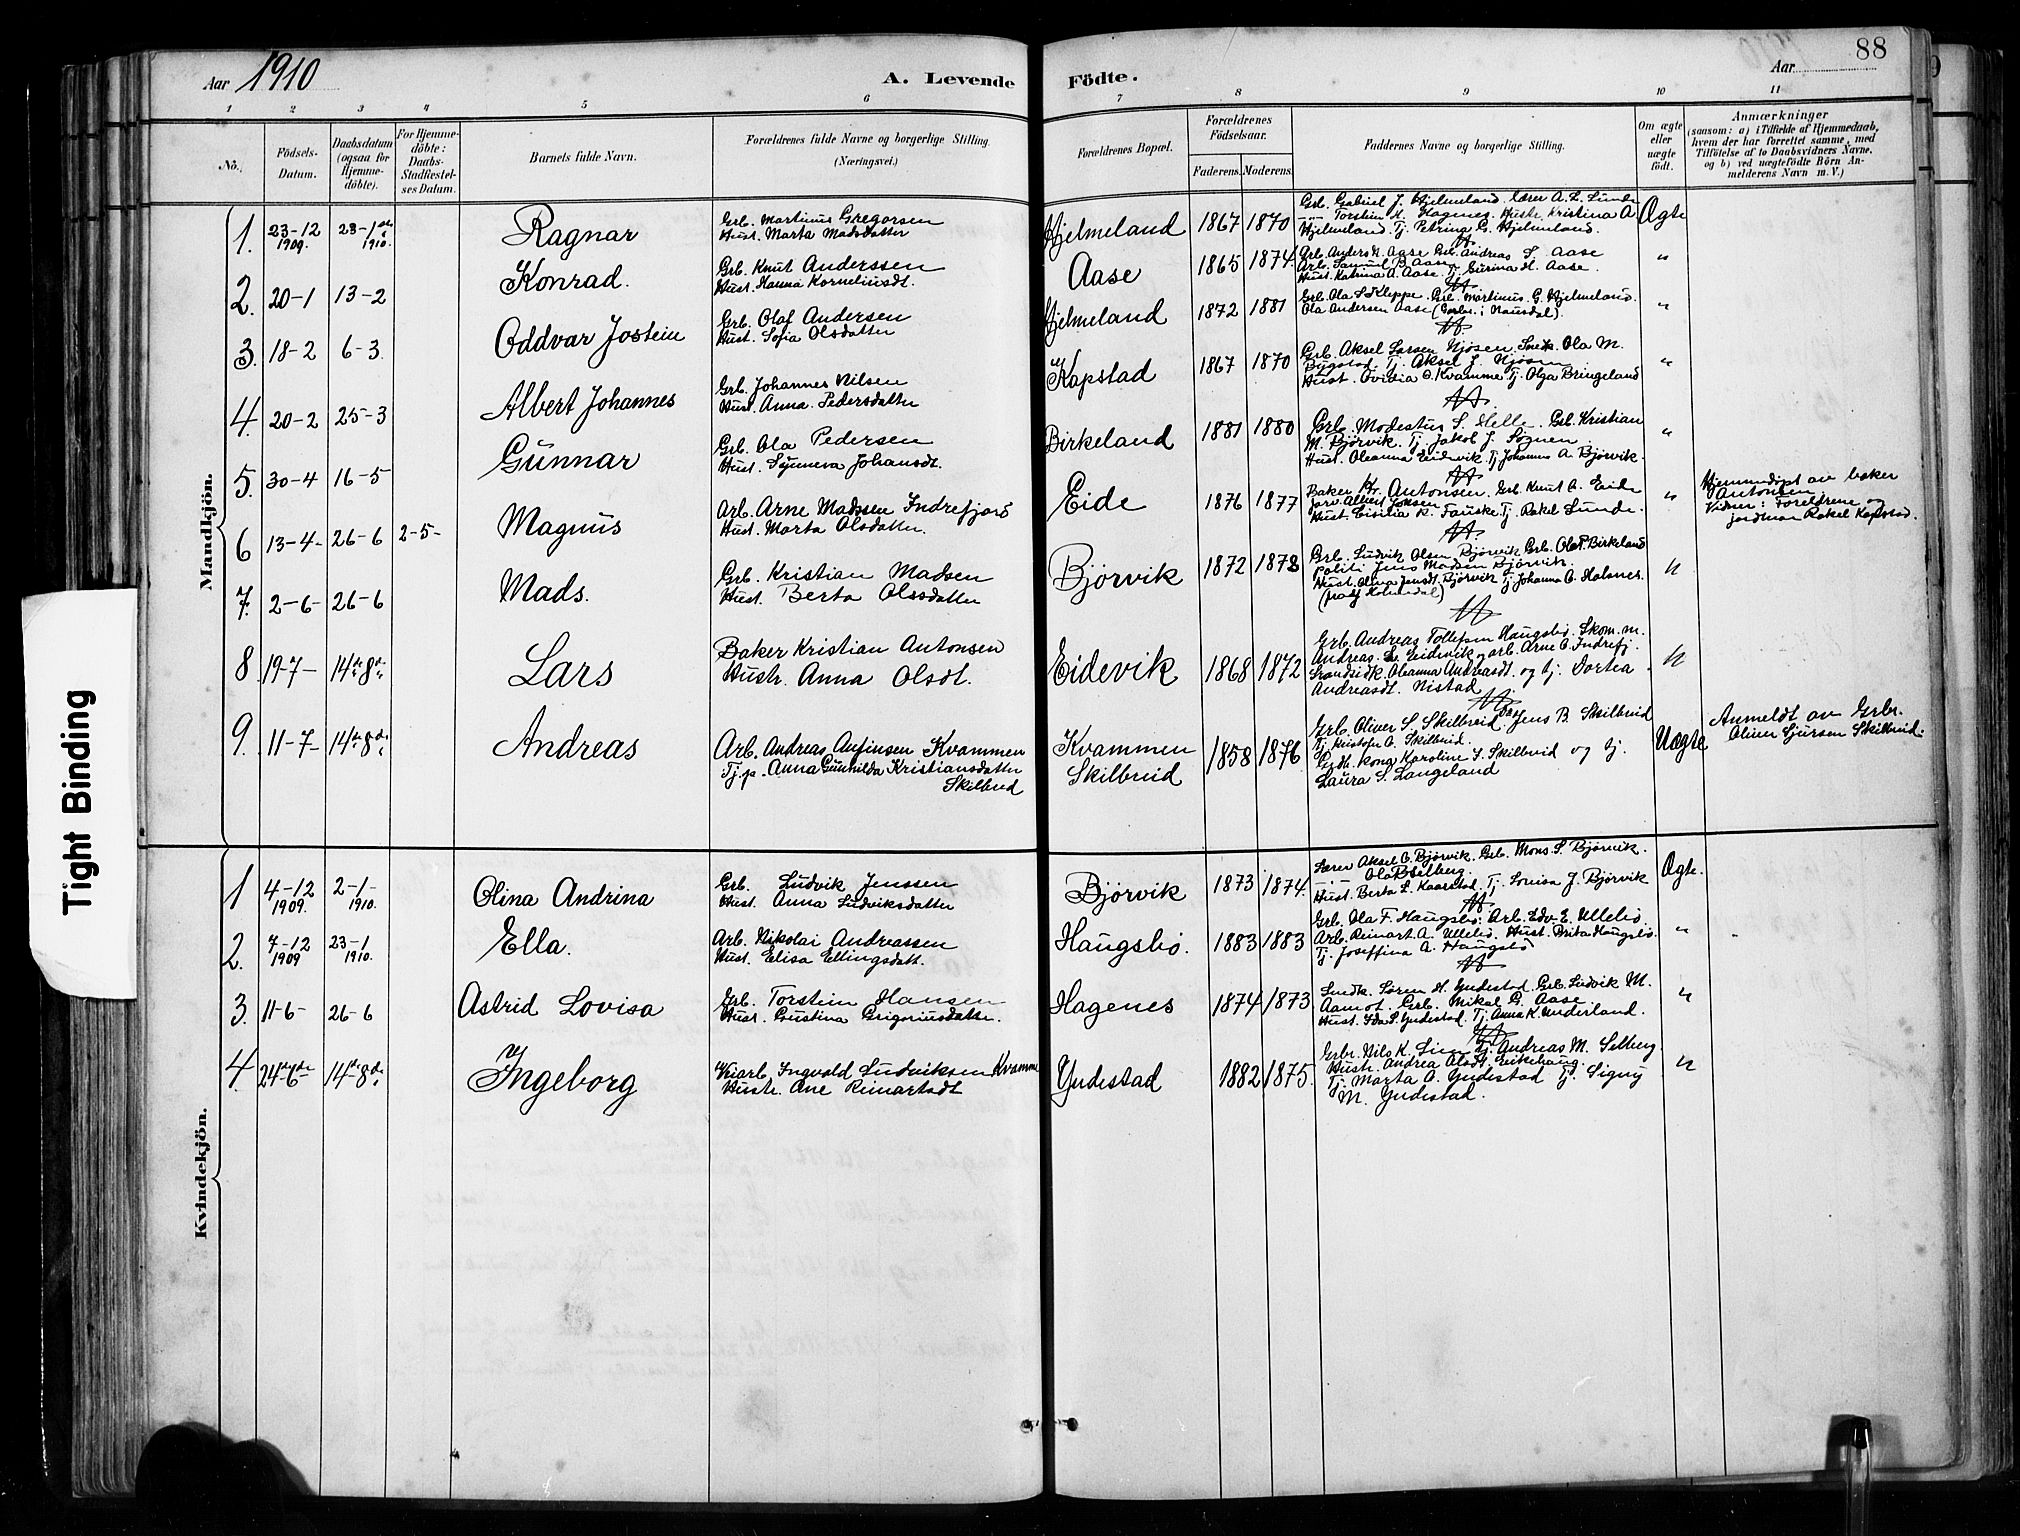 Aar 1910
A. Levende Födte.
Aar
88
1 2 3 4 5 6 7 8 9 10 11
No.
Födsels-Datum.
Daabsdatum (ogsaa for Hjemmedöbte).
For Hjemmedöbte: Daabs-Stadfæstelses Datum.
Barnets fulde Navn.
Forældrenes fulde Navne og borgerlige Stilling. (Næringsvei.)
Forældrenes Bopæl.
Forældrenes Födselsaar.
Faderens. Moderens.
Faddernes Navne og borgerlige Stilling.
Om ægte eller uægte födt.
Anmærkninger
(saasom: a) i Tilfælde af Hjemmedaab, hvem der har forrettet samme, med Tilföielse af to Daabsvidners Navne, og b) ved uægtefödte Börn Anmelderens Navn m. V.)
Mandkjön.
1. 23-12 1909. 23-1 1910. Ragnar
Grb. Martinus Gregorsen
Hust. Marta Madsdatter
Hjelmeland 1867 1870
Grb. Gabriel J. Hjelmeland. Lærer A. L. Lunde
Torstein H. Hagenes. Hustr. Kristina A.
Hjelmeland. Tj. Petrina G. Hjelmeland.
Ægte
2. 20-1 13-2 Konrad.
Grb. Knut Anderssen
Hust. Hanna Korneliusdt.
Aase 1865 1874.
Grb. Anders K. Aase Grb. Andreas S. Aase
Arb. Samuel B. Aase
Hust. Katrina A. Aase. Tj. Gurina H. Aase.
"
3. 18-2 6-3. Oddvar Jostein
Grb. Olaf Andersen
Hust. Sofia Olsdatter
Hjelmeland 1872 1881
Grb. Ola S. Kleppe. Grb. Martinus G. Hjelmeland.
Ola Andersen Aase
"
4. 20-2 25-3 Albert Johannes
Grb. Johannes Nilsen
Hust. Anna Pedersdatter
Kapstad 1867 1870
Grb. Aksel Larsen Njösen. Ola M.
Bygstad. Tj. Aksel L. Njösen
Hust. Ovidia O. Kvamme Tj. Olga Bringeland
"
5. 30-4 16-5 Gunnar
Grb. Ola Pedersen
Hust. Synneva Johansdt.
Birkeland 1881 1880
Grb. Modestus S. Helle. Grb. Kristian
M. Bjørvik. Tj. Jakob J. Sognen.
Hust. Oleanna Eidevik. Tj. Johanna A. Bjørvik.
"
6 13-4- 26-6 2-5- Magnus
Arb. Arne Madssen Indrefjord
Hust. Marta Olsdatter.
Eide 1876 1877
Baker Kr. Antonsen. Grb. Knut A. Eide
Hust. Cisilia R. Fauske. Tj. Rakel Lunde.
"
Hjemmedøpt av baker
Antonsen
Vidner: Foreldrene og
jordmor Rakel Kapstad.
7. 2-6- 26-6 Mads.
Grb. Kristian Madsen
Hust. Berta Olssdatter
Bjørvik 1872 1878
Grb. Ludvik Olsen Bjørvik Grb. Ola P. Birkeland
Politi Jens Madsen Bjørvik.
Hust. Olina Jensdt. Bjørvik Tj. Johanna O. Halsnes.
"
8 19-7- 14-8 Lars
Baker Kristian Antonsen
Hustr. Anna Olsdt.
Eidevik 1868 1872
Grb. Andreas Tollefsen Haugsbö. Skom. m.
Andreas L. Eidevik og arb. Arne O. Indrefj.
Oleanna Andreasdt. og tj. Dortea
Andreasdt. Nistad
"
9. 11-7- 14-8 Andreas
Arb. Andreas Anfinsen Kvammen
Tj.p. Anna Gunhilda Kristiansdatter
Skilbreid
Kvammen
Skilbreid 1858 1876
Grb. Oliver S. Skilbreid Jens B. Skilbreid
Tj. Kristofer O. Skilbreid.
Grdb. kona Karoline S. Skilbreid og tj.
Laura S. Langeland
Uægte
Anmeldt av Grbr.
Oliver Sjursen Skilbreid.
Kvindekjön.
1 4-12 1909. 2-1- 1910. Olina Andrina
Grb. Ludvik Jenssen
Hust. Anna Ludviksdatter
Bjørvik 1873 1874.
Lærer Aksel O. Bjørvik. Grb. Mons S. Bjørvik.
Ola B. Selberg.
Hust. Berta L. Kaarstad. Tj. Lovisa J. Bjørvik
Ægte.
2. 7-12 1909 23-1 1910. Ella.
Arb. Nikolai Andreassen
Hust. Elisa Ellingsdatt.
Haugsbö. 1883 1883
Grb. Ola F. Haugsbö. Arb. Edv. E. Ullebö.
Arb. Reinart A. Ullebö. Hust. Brita Haugsbö.
Tj. Joseffina A. Haugsbö
"
3. 11-6- 26-6 Astrid Lovisa
Grb. Torstein Hansen
Hust. Gustina Grigoriusdatter.
Hagenes 1874 1873
Smdk. Søren H. Yndestad. Grb. Ludvik M.
Aamot. Grb. Mikal G. Aase
Hust. Ida S. Yndestad. Tj. Anna K. Underland.
"
4. 24-6 14-8 Ingeborg
Veiarb. Ingvald Ludviksen Kvamme
Hustr. Ane Reinartsdt
Yndestad 1882 1875.
Grbr. Nils K. Lien Tj. Andreas M. Selberg.
Hustr. Andrea Alsdt. Eikehaug
Tj. Marta A. Yndestad Tj. Signy
M. Yndestad.
"
Tight Binding